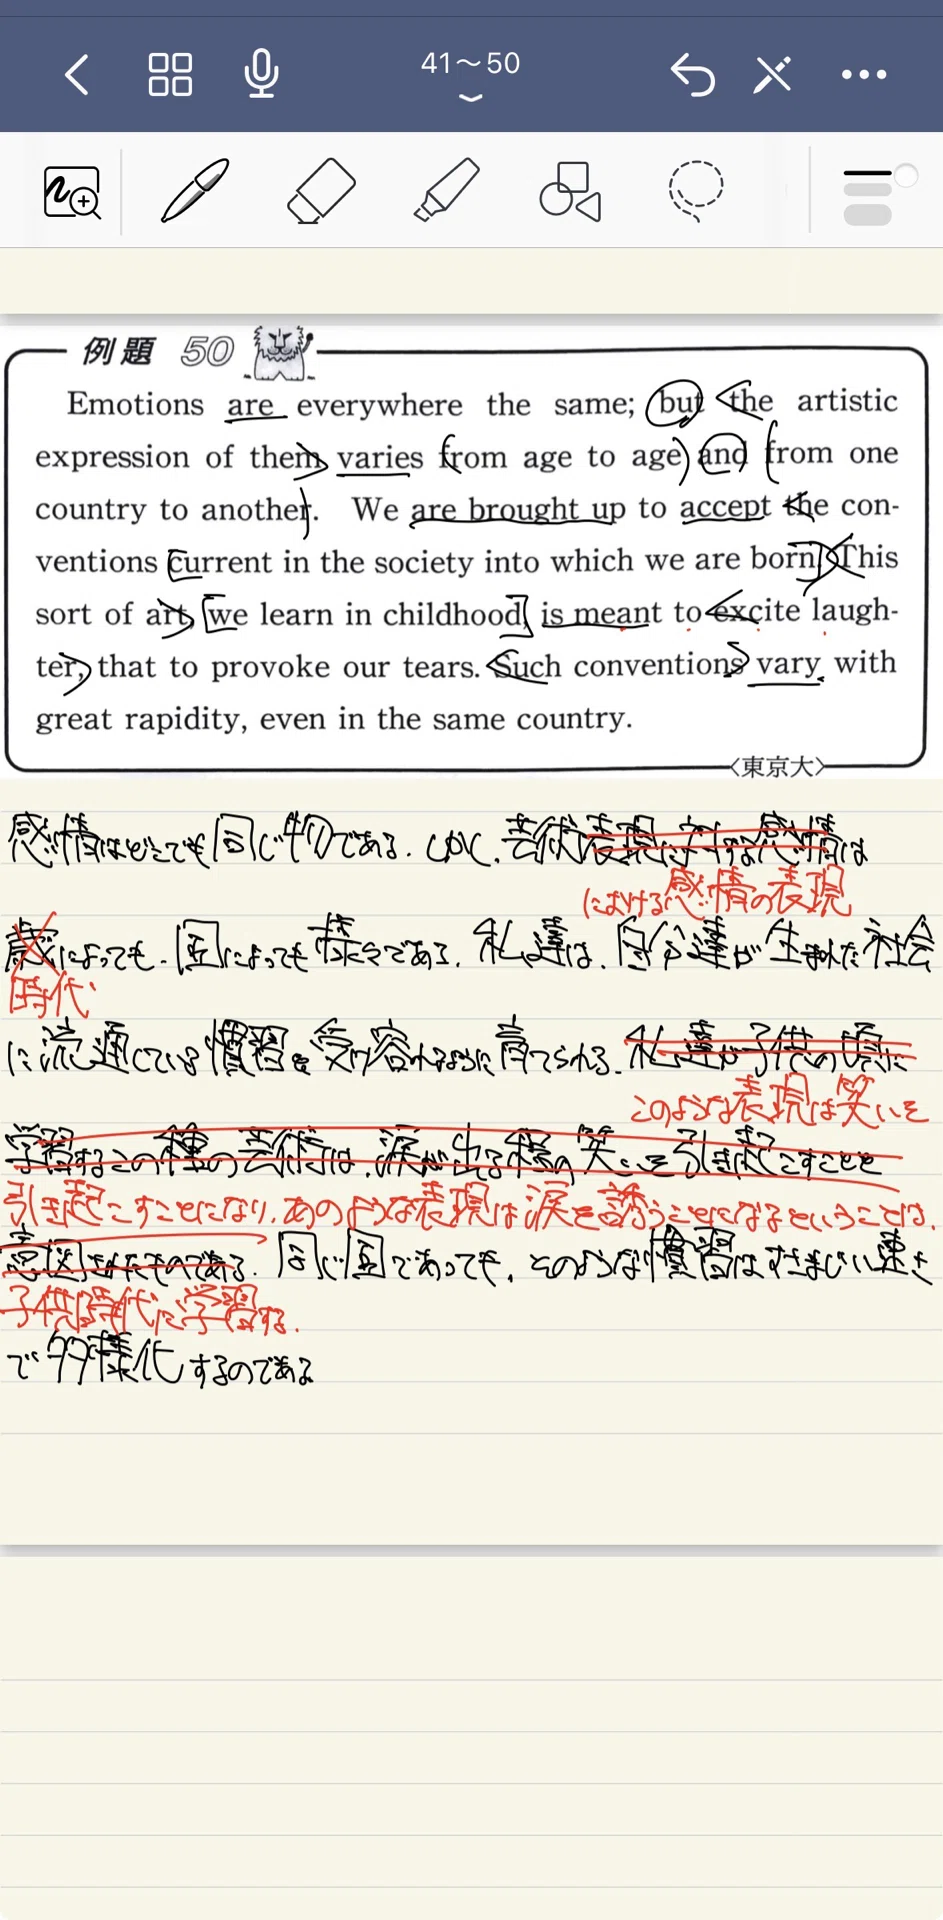 41〜50
例題 50
Emotions are everywhere the same; but the artistic
expression of them varies from age to age and from one
country to another. We are brought up to accept the con-
ventions current in the society into which we are born. This
sort of art, we learn in childhood, is meant to excite laugh-
ter, that to provoke our tears. Such conventions vary with
great rapidity, even in the same country.
〈東京大〉
感情はどこでも同じ物である. しかし, 芸術表現に対する感情は
における感情の表現
歳によっても, 国によっても様々である. 私達は, 自分達が生まれた社会
時代
に流通している慣習を受け容れるように育てられる. 私達が子供の頃に
このような表現は笑いを
学習するこの種の芸術は, 涙が出る程の笑いを引き起こすことを
引き起こすことになり, あのような表現は涙を誘うことになるということは,
意図されたものである. 同じ国であっても, そのような慣習はすさまじい速さ
子供時代に学習する.
で多様化するのである